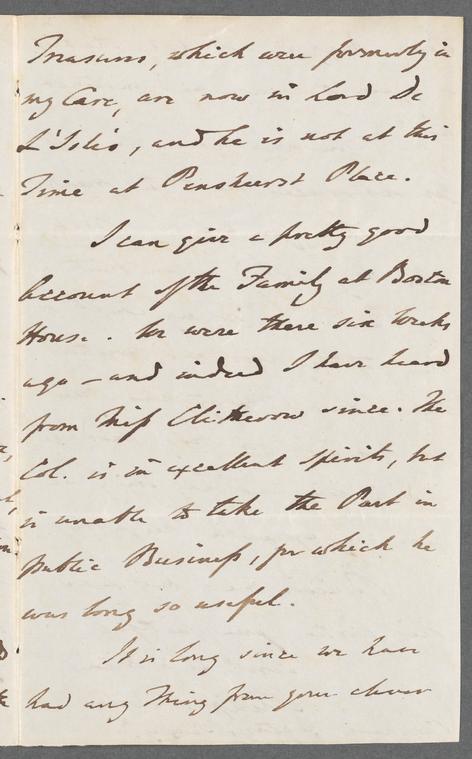 Treasures, which were formerly in
my Care, are now in Lord De
L'Isle's, and he is not at this
Time at Penshurst Place.
I can give a pretty good
Account of the Family at Boston
House. We were there six Weeks
ago – and indeed I have heard
from Miss Clitherow since. The
Col. is in excellent Spirits, but
is unable to take the Part in
public Business, for which he
was long so useful.
It is long since we have
had any Thing from your clever